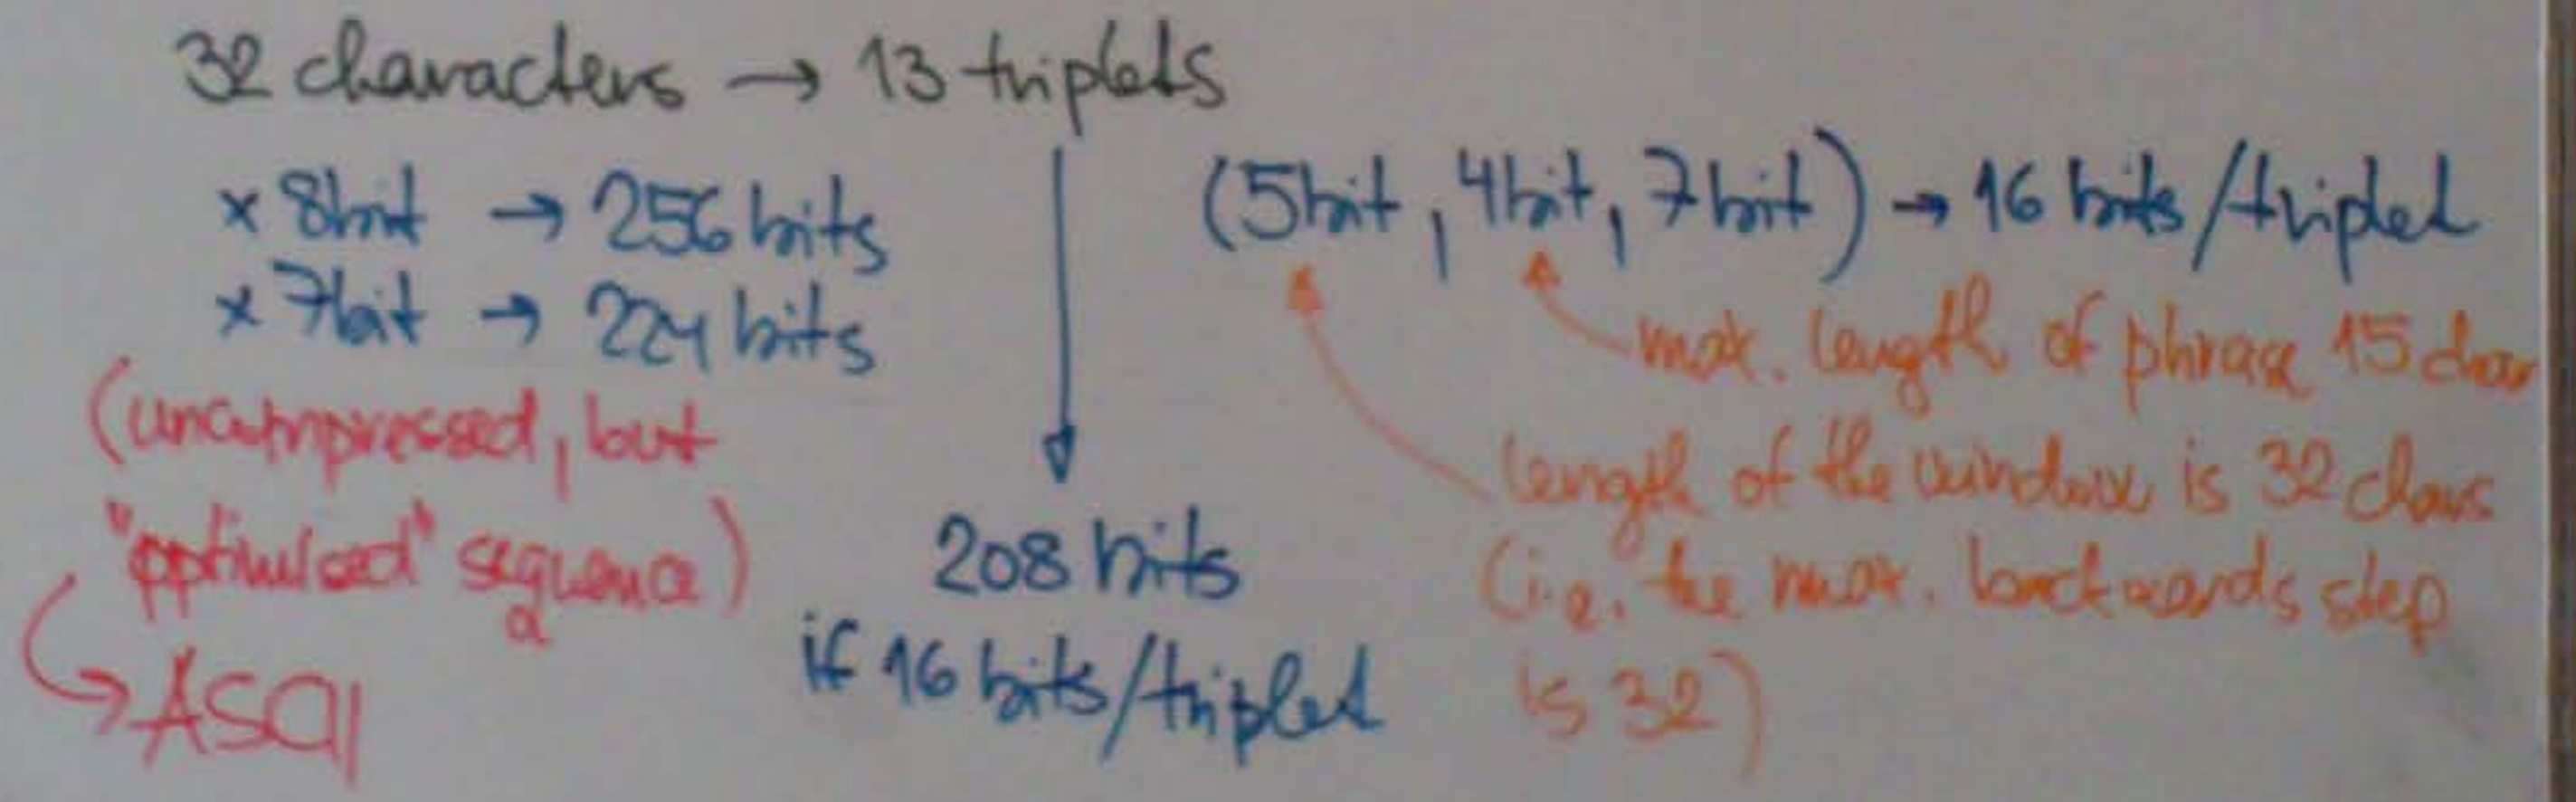 32 characters → 13 triplets
x 8bit → 256 bits
x 7bit → 224 bits
(uncompressed, but
"optimized" sequence)
a
→ ASCII
208 bits
if 16 bits/triplet
(5bit, 4bit, 7bit) → 16 bits/triplet
max. length of phrase 15 char
length of the window is 32 chars
(i.e. the max. backwards step
is 32)